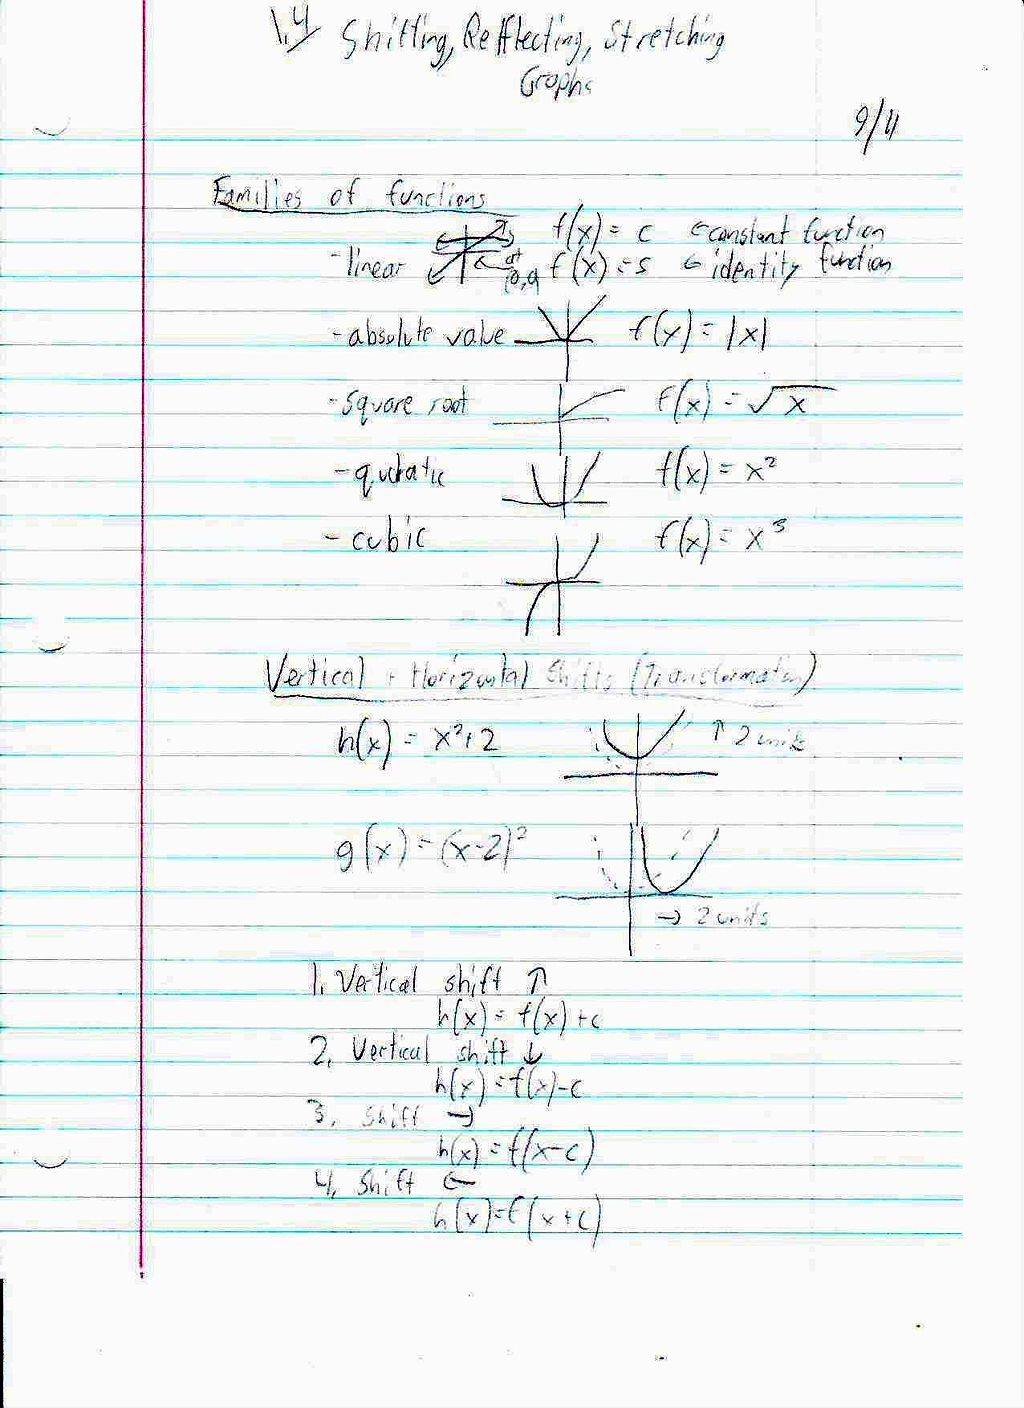 1.4 Shifting, Refflecting, Stretching
Graphs
9/11
Families of functions
f(x) = c ← constant function
- linear at (0,0) f(x) = s ← identity function
- absolute value f(x) = |x|
- square root f(x) = √x
- qudratic f(x) = x²
- cubic f(x) = x³
Vertical + Horizontal Shifts (Transformation)
h(x) = x²+2 ↑ 2 units
g(x) = (x-2)²
→ 2 units
1. Vertical shift ↑
h(x) = f(x) + c
2. Vertical shift ↓
h(x) = f(x) - c
3. Shift →
h(x) = f(x-c)
4. Shift ←
h(x) = f(x+c)